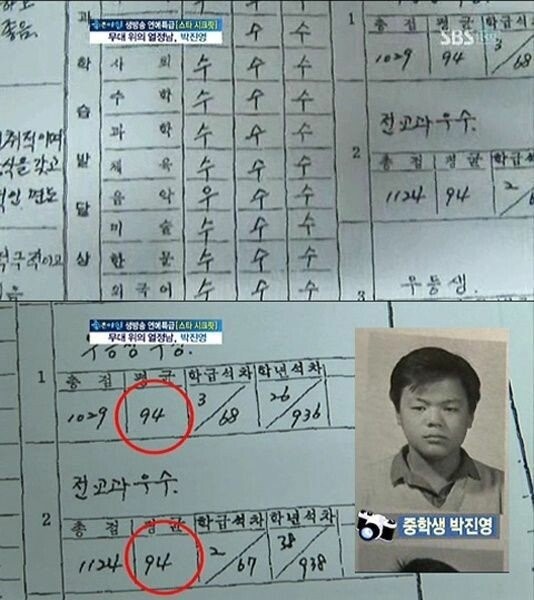 좋은아침 생방송 연예특급[스타 시크릿]
무대 위의 열정남, 박진영
SBS
좋음.
취적이며
식을 갖고
적인 면도
적극적이고
과
학
습
발
달
상
사 회 수 수 수
수 학 수 수 수
과 학 수 수 수
체 육 수 수 수
음 악 우 수 수
미 술 수 수 수
한 문 수 수 수
외국어 수 수 수
1
총 점 평 균 학급석
1029 94 3/68
전교과 우수.
2
총 점 평 균 학급석
1124 94 2/6
3
우등생.
좋은아침 생방송 연예특급[스타 시크릿]
무대 위의 열정남, 박진영
1
총 점 평 균 학급석차 학년석차
1029 94 3/68 26/936
전교과 우수.
2
총 점 평 균 학급석차 학년석차
1124 94 2/67 38/938
중학생 박진영